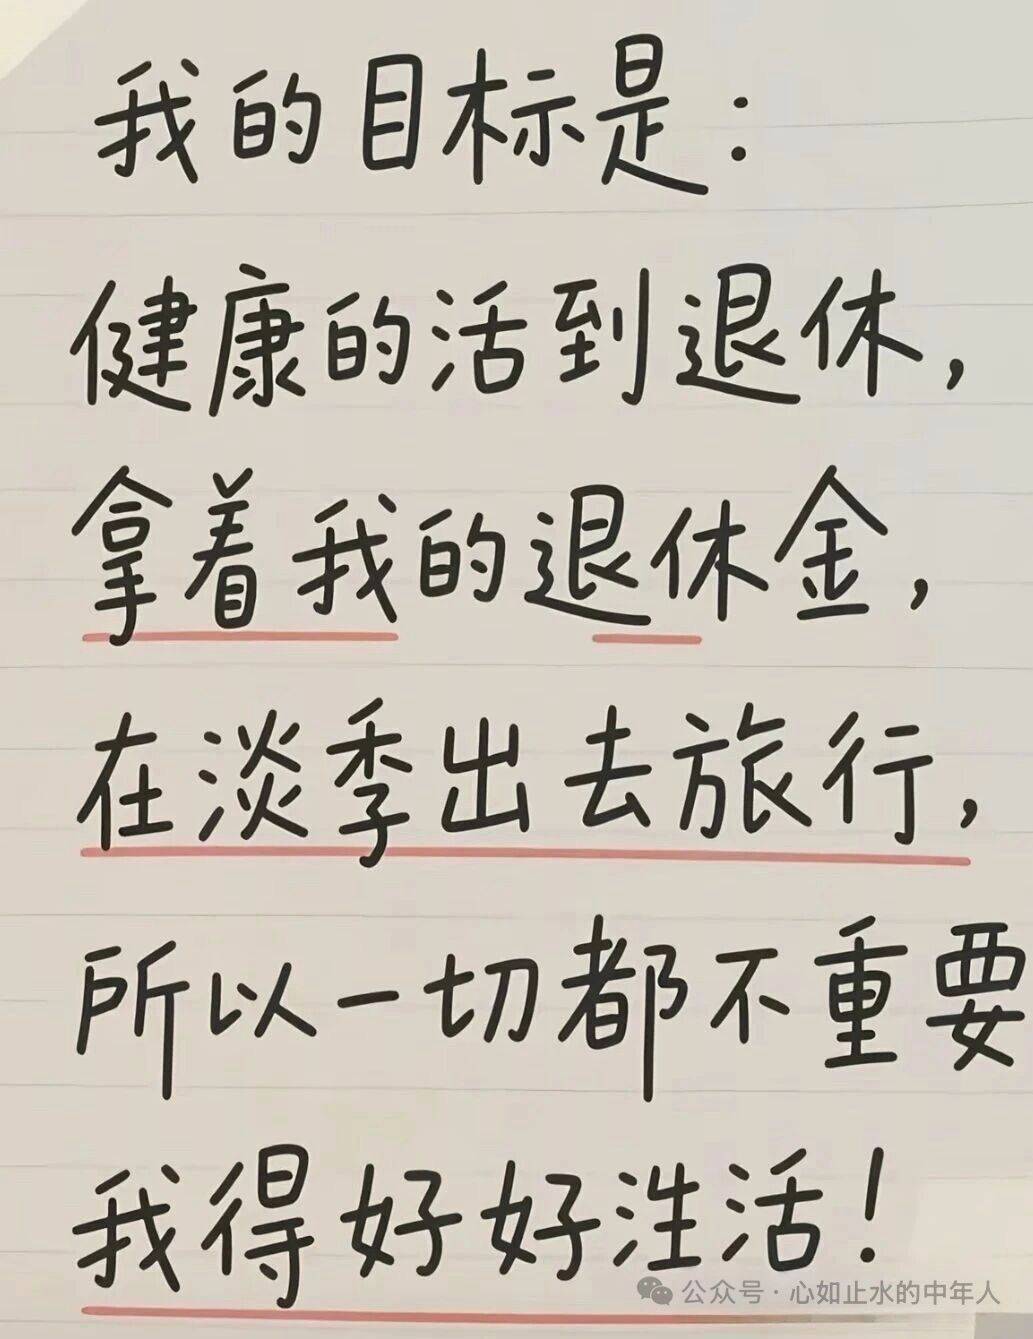 我的目标是：
健康的活到退休，
拿着我的退休金，
在淡季出去旅行，
所以一切都不重要
我得好好泩活！
公众号·心如止水的中年人